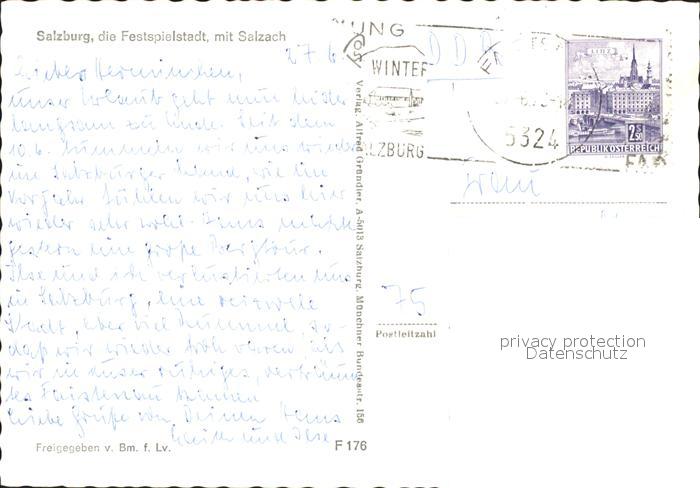 Salzburg, die Festspielstadt, mit Salzach
27.6.
Liebes Herminchen,
unser Urlaub geht nun leider
langsam zu Ende. Seit dem
10.6. tummeln wir uns wieder
im Salzburger Land, wie im
Vorjahr fühlen wir uns hier
wieder sehr wohl. Hans machte
gestern eine große Bergtour.
Ilse und ich verlustierten uns
in Salzburg, eine reizvolle
Stadt, aber viel Rummel, so-
daß wir wieder froh waren, als
wir in unser ruhiges,
Faistenau kamen
Liebe Grüße von Deinen Hans
und Ilse
Freigegeben v. Bm. f. Lv.
F 176
Verlag. Alfred Gründler, A-5013 Salzburg, Münchner Bundesstr. 156
UNG
WINTER
ALZBURG
DDR
5324
LINZ
2.50
REPUBLIK ÖSTERREICH
Frau
75
Postleitzahl
privacy protection
Datenschutz